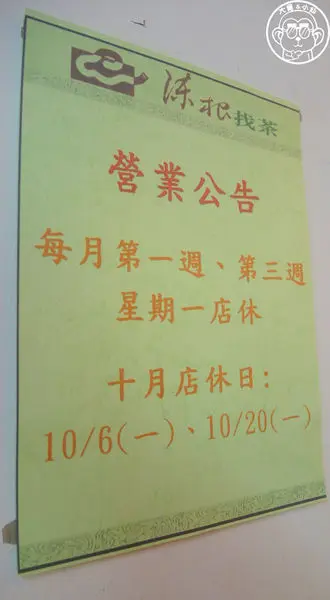 大手&小對
陳根找茶
營業公告
每月第一週、第三週
星期一店休
十月店休日:
10/6(一)、10/20(一)